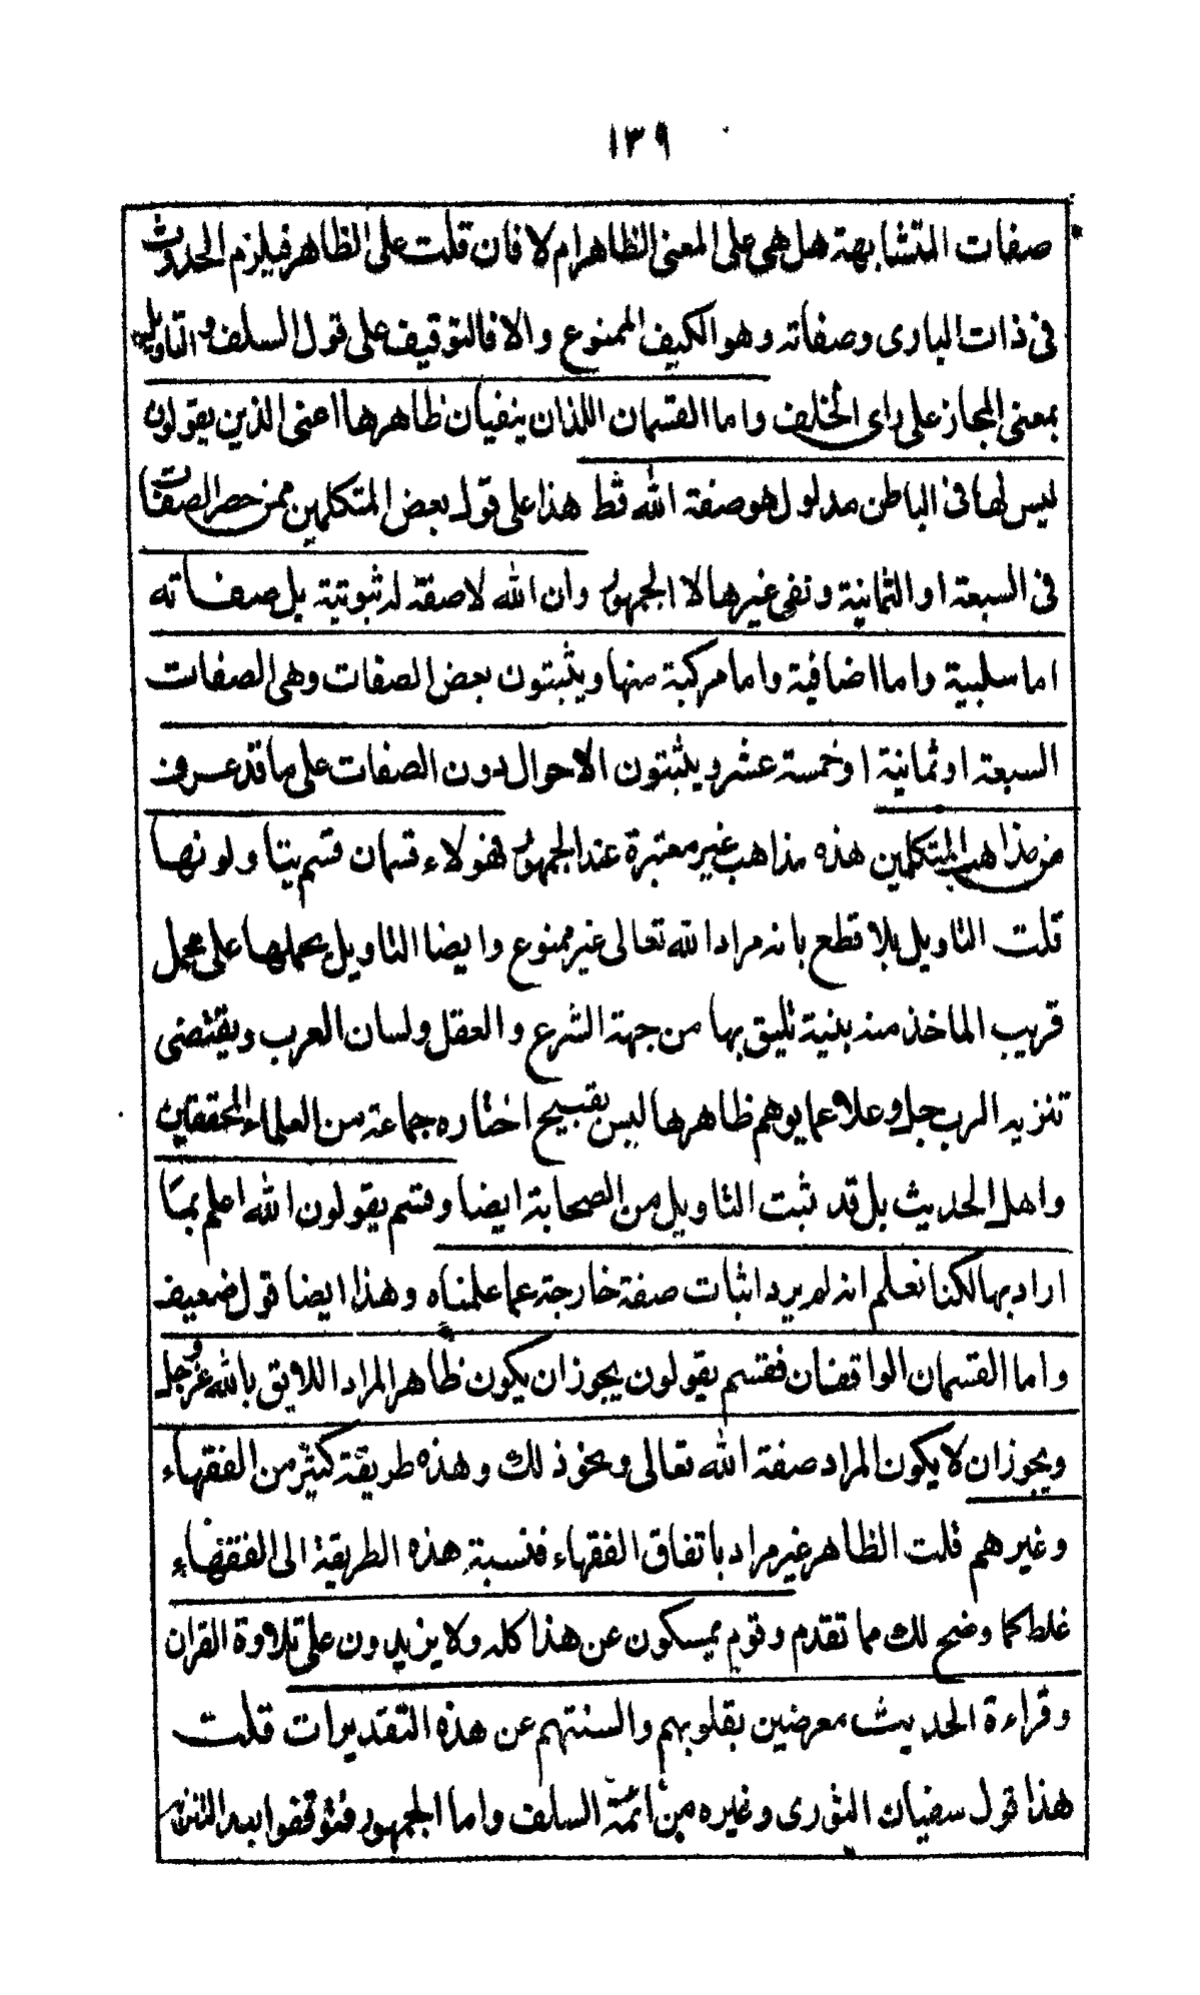 ١٣٩
صفات المتشابهة هل هي على المعنى الظاهر ام لا فان قلت على الظاهر فيلزم الحدوث
في ذات البارى وصفاته وهو الكيف الممنوع والا فالتوقيف على قول السلف والتاويل
بمعنى المجاز على راى الخلف واما القسمان اللذان ينفيان ظاهرها اعنى الذين يقولون
ليس لها فى الباطن مدلول هو صفة الله قط هذا على قول بعض المتكلمين ممن حصر الصفات
فى السبعة او الثمانية ونفى غيرها لا الجمهور وان الله لا صفة له ثبوتية بل صفاته
اما سلبية واما اضافية واما مركبة منها ويثبتون بعض الصفات وهى الصفات
السبعة او ثمانية او خمسة عشر ويثبتون الاحوال دون الصفات على ما قد عرف
من مذاهب المتكلمين هذه مذاهب غير معتبرة عند الجمهور فهولاء قسمان قسم يتاولونها
قلت التاويل بلا قطع بانه مراد الله تعالى غير ممنوع وايضا التاويل بحملها على محمل
قريب الماخذ منه بنية تليق بها من جهة الشرع والعقل ولسان العرب ويقتضى
تنزيه الرب جل وعلا عما يوهم ظاهرها ليس بقبيح اختاره جماعة من العلماء المحققين
واهل الحديث بل قد ثبت التاويل من الصحابة ايضا وقسم يقولون الله اعلم بما
اراد بها لكنا نعلم انه لم يرد اثبات صفة خارجة عما علمناه وهذا ايضا قول ضعيف
واما القسمان الواقفان فقسم يقولون يجوز ان يكون ظاهر المراد اللايق بالله عز وجل
ويجوز ان لا يكون المراد صفة الله تعالى ونحو ذلك وهذه طريقة كثير من الفقهاء
وغيرهم قلت الظاهر غير مراد باتفاق الفقهاء فنسبة هذه الطريقة الى الفقهاء
غلط كما وضح لك مما تقدم وقوم يمسكون عن هذا كله ولا يزيدون على تلاوة القران
وقراءة الحديث معرضين بقلوبهم والسنتهم عن هذه التقديرات قلت
هذا قول سفيان الثورى وغيره من ائمة السلف واما الجمهور فتوقفوا بعد التنزيه